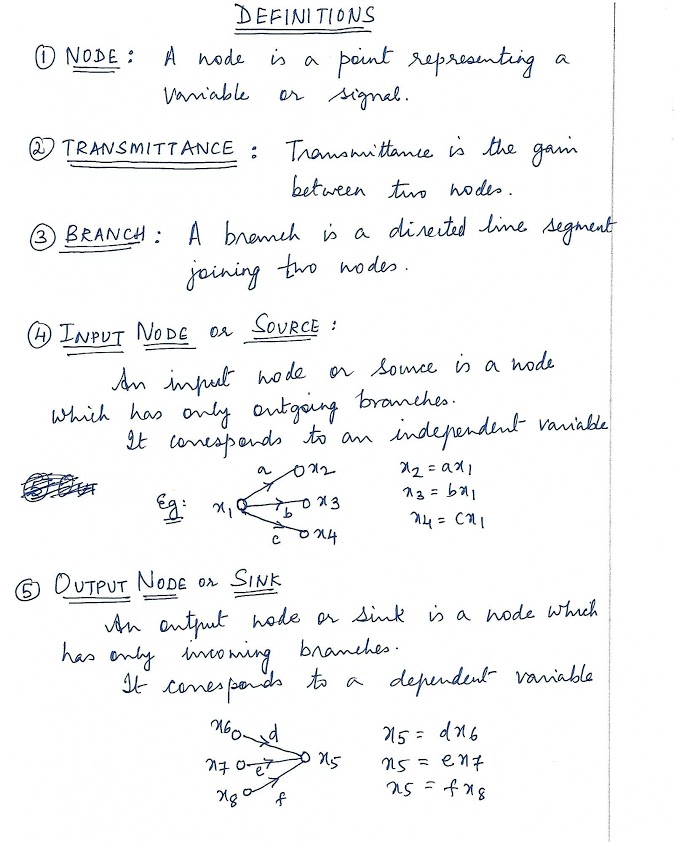 DEFINITIONS
① NODE : A node is a point representing a
variable or signal.
② TRANSMITTANCE : Transmittance is the gain
between two nodes.
③ BRANCH : A branch is a directed line segment
joining two nodes.
④ INPUT NODE or SOURCE :
An input node or source is a node
which has only outgoing branches.
It corresponds to an independent variable
Eg: x1 a x2 b x3 c x4
x2 = ax1
x3 = bx1
x4 = cx1
⑤ OUTPUT NODE or SINK
An output node or sink is a node which
has only incoming branches.
It corresponds to a dependent variable
x6 d x7 e x8 f x5
x5 = dx6
x5 = ex7
x5 = fx8